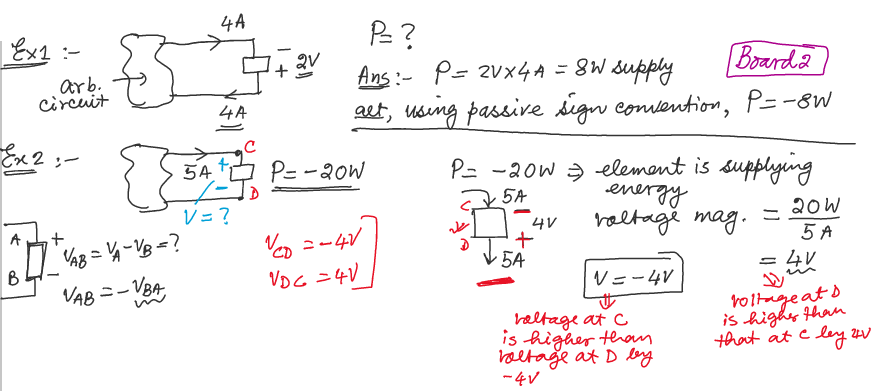 Ex1 :-
arb.
circuit
4A
-
+ 2V
4A
P= ?
Ans :- P= 2V×4A = 8W supply
alt, using passive sign convention, P= -8W
Board 2
Ex2 :-
5A
+
-
V=?
C
D
P= -20W
A
B
+
-
VAB = VA - VB = ?
VAB = -VBA
VCD = -4V
VDC = 4V
P= -20W ⇒ element is supplying
energy
C
D
5A
-
4V
+
5A
voltage mag. = 20W
5A
= 4V
V = -4V
⇓
voltage at C
is higher than
voltage at D by
-4V
⇓
voltage at D
is higher than
that at C by 4V